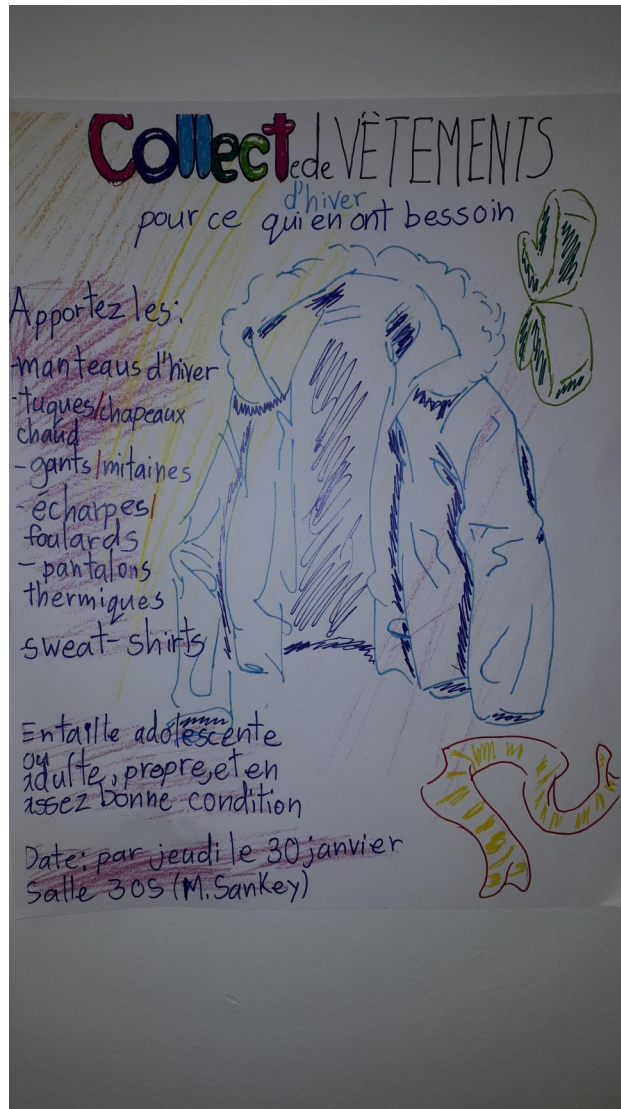 Collecte de VÊTEMENTS
d'hiver
pour ce qui en ont bessoin
Apportez les:
-manteaus d'hiver
-tuques/chapeaux
chaud
-gants/mitaines
-écharpes/
foulards
-pantalons
thermiques
sweat-shirts
En taille adolescente
ou
adulte, propre, et en
assez bonne condition
Date: par jeudi le 30 janvier
Salle 305 (M. Sankey)